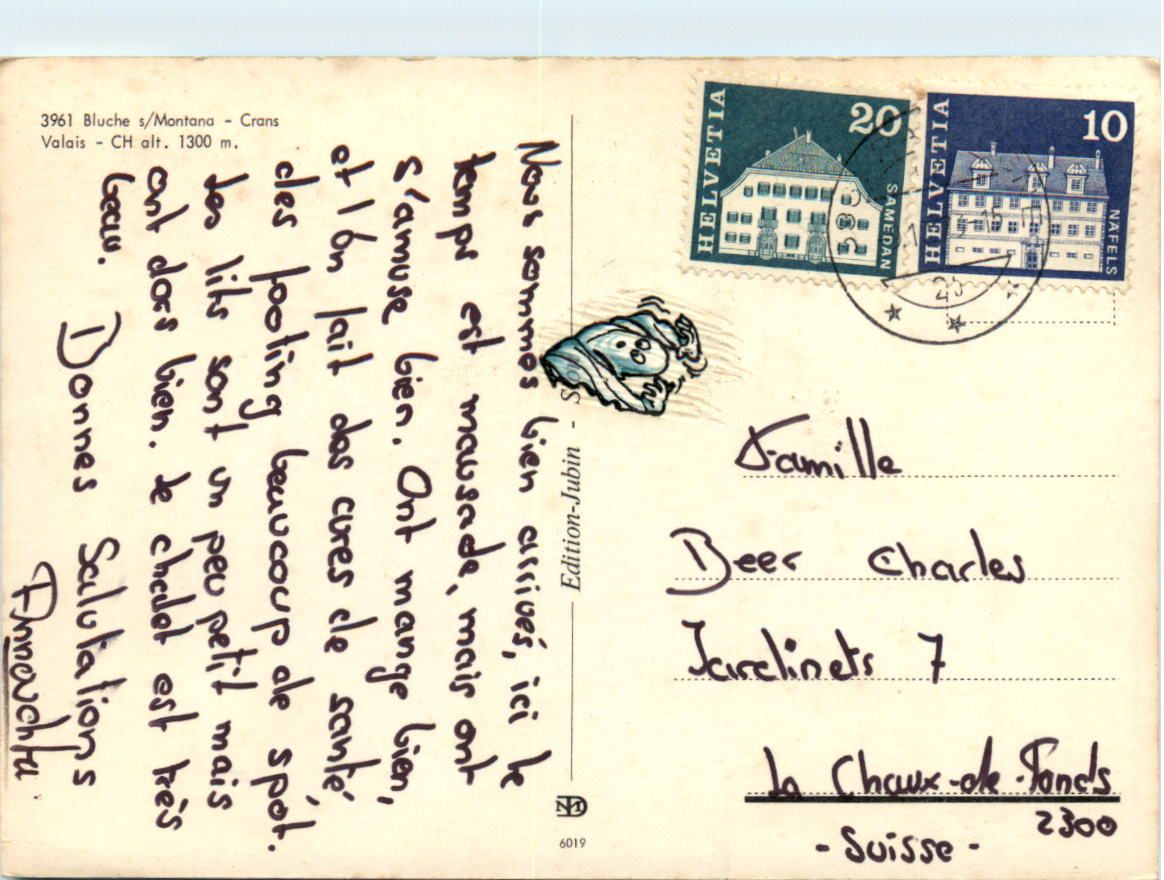 3961 Bluche s/Montana - Crans
Valais - CH alt. 1300 m.
Nous sommes bien arrivés, ici le
temps est mausade, mais ont
s'amuse bien. Ont mange bien,
et l'on fait des cures de santé,
des footing beaucoup de spot.
Les lits sont un peu petit mais
ont dors bien. Le chalet est très
beau. Donnes Salutations
Edition-Jubin -
6019
HELVETIA
20
SAMEDAN
HELVETIA
10
NÄFELS
Famille
Beer Charles
Jardinets 7
La Chaux-de-Fonds
2300
- Suisse -